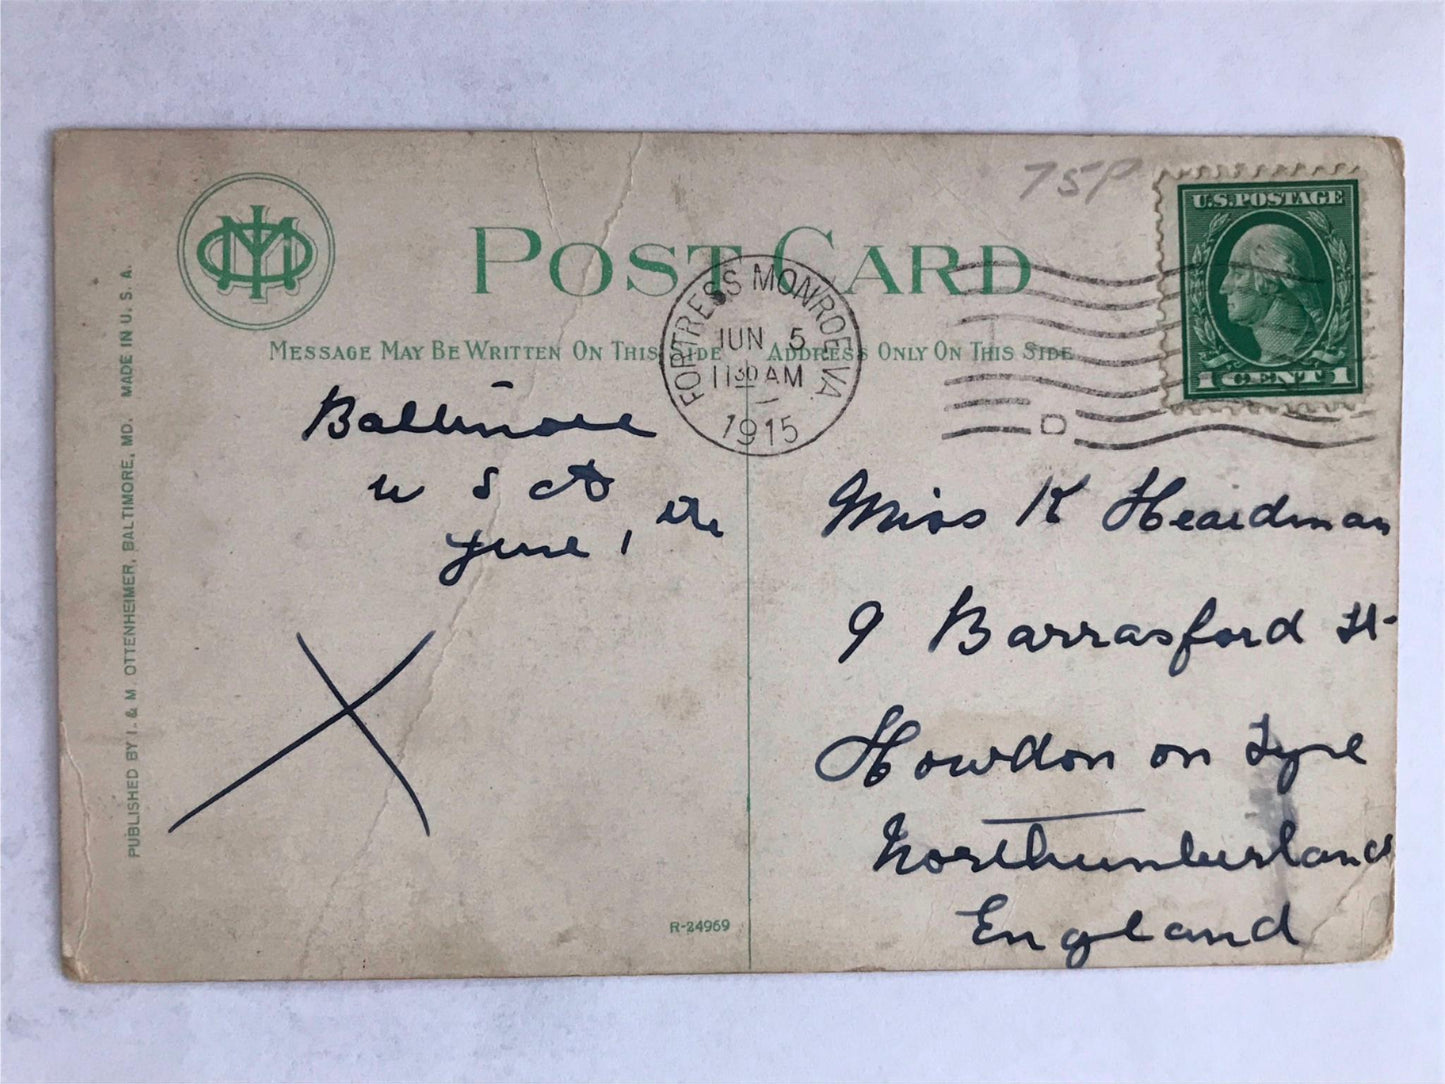 75P
U.S. POSTAGE
1 CENT 1
POST CARD
FORTRESS MONROE VA.
JUN 5
11 30 AM
1915
D
MESSAGE MAY BE WRITTEN ON THIS SIDE
ADDRESS ONLY ON THIS SIDE
Baltimore
U S
June 1
Miss K Heardman
9 Barrasford St-
Howdon on Tyne
Northumberland
England
R-24969
PUBLISHED BY I. & M. OTTENHEIMER, BALTIMORE, MD. MADE IN U. S. A.